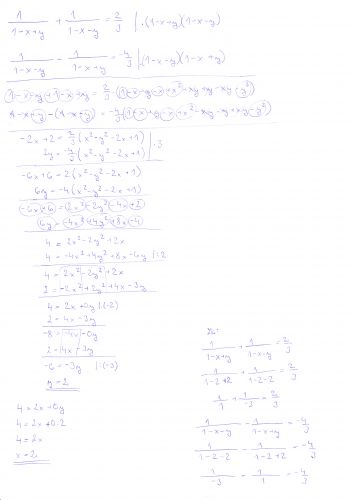 1/(1-x+y) + 1/(1-x-y) = 2/3 | ·(1-x+y)(1-x-y)
1/(1-x-y) - 1/(1-x+y) = -4/3 | ·(1-x-y)(1-x+y)
-2x+2 = 2/3 (x²-y²-2x+1) | ·3
2y = -4/3 (x²-y²-2x+1)
-6x+6 = 2(x²-y²-2x+1)
6y = -4(x²-y²-2x+1)
-6x+6 = 2x²-2y²-4x+2
6y = -4x²+4y²+8x-4
4 = 2x²-2y²+2x
4 = -4x²+4y²+8x-6y |:2
4 = 2x²-2y²+2x
2 = -2x²+2y²+4x-3y
4 = 2x+0y |·(-2)
2 = 4x-3y
-8 = -4x-0y
2 = 4x-3y
-6 = -3y |:(-3)
y = 2
4 = 2x+0y
4 = 2x+0·2
4 = 2x
x = 2
1/(1-x+y) + 1/(1-x-y) = 2/3
1/(1-2+2) + 1/(1-2-2) = 2/3
1/1 + 1/-3 = 2/3
1/(1-x-y) - 1/(1-x+y) = -4/3
1/(1-2-2) - 1/(1-2+2) = -4/3
1/-3 - 1/1 = -4/3